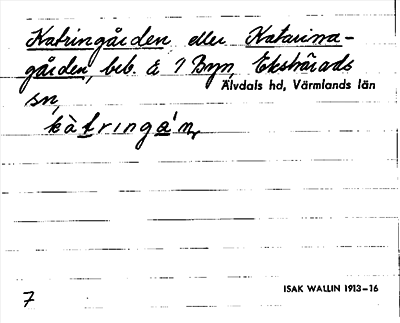 Katringården eller Katarina-
gården, beb. å 1 Byn, Ekshärads
Älvdals hd, Värmlands län
sn,
kàtringá'n,
7
ISAK WALLIN 1913–16